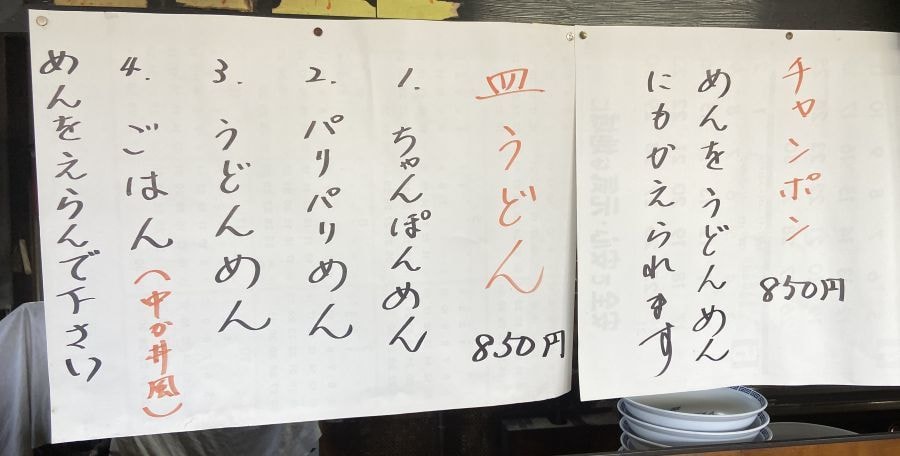 チャンポン
850円
めんをうどんめん
にもかえられます
皿うどん
850円
1. ちゃんぽんめん
2. パリパリめん
3. うどんめん
4. ごはん(中か井風)
めんをえらんで下さい